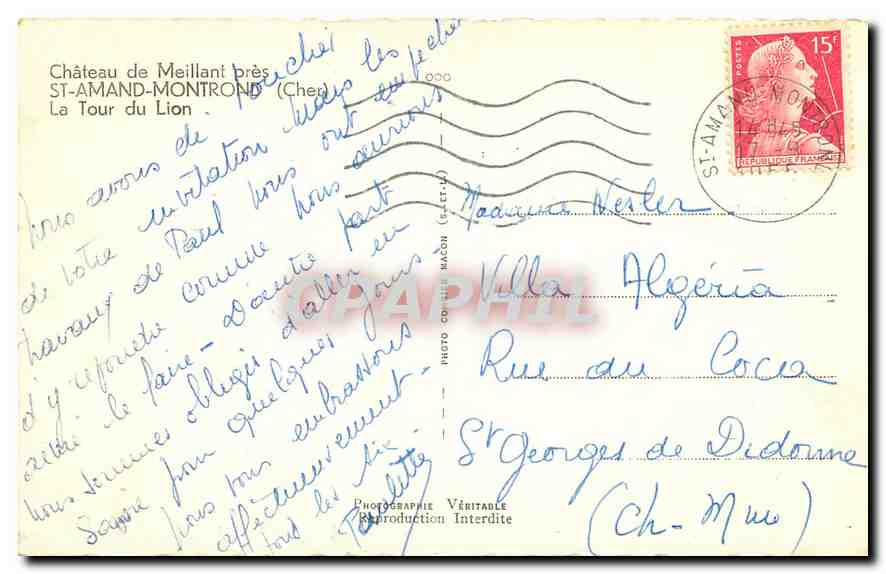 Château de Meillant près
ST-AMAND-MONTROND (Cher)
La Tour du Lion
Nous avons été touchés
de votre invitation mais les
travaux de Paul nous ont empêchés
d'y répondre comme nous aurions
aimé le faire - D'autre part
nous sommes obligés d'aller en
pour quelques jours -
nous vous embrassons
affectueusement -
tous les six
Paulette
PHOTO COMBIER MACON (S.-ET-L.)
PHOTOGRAPHIE VÉRITABLE
Reproduction Interdite
POSTES
15F
REPUBLIQUE FRANÇAISE
ST-AMAND-MONTROND
CPAPHIL
Madame Wesler
Villa Algéria
Rue du Coca
St Georges de Didonne
(Ch-Mme)